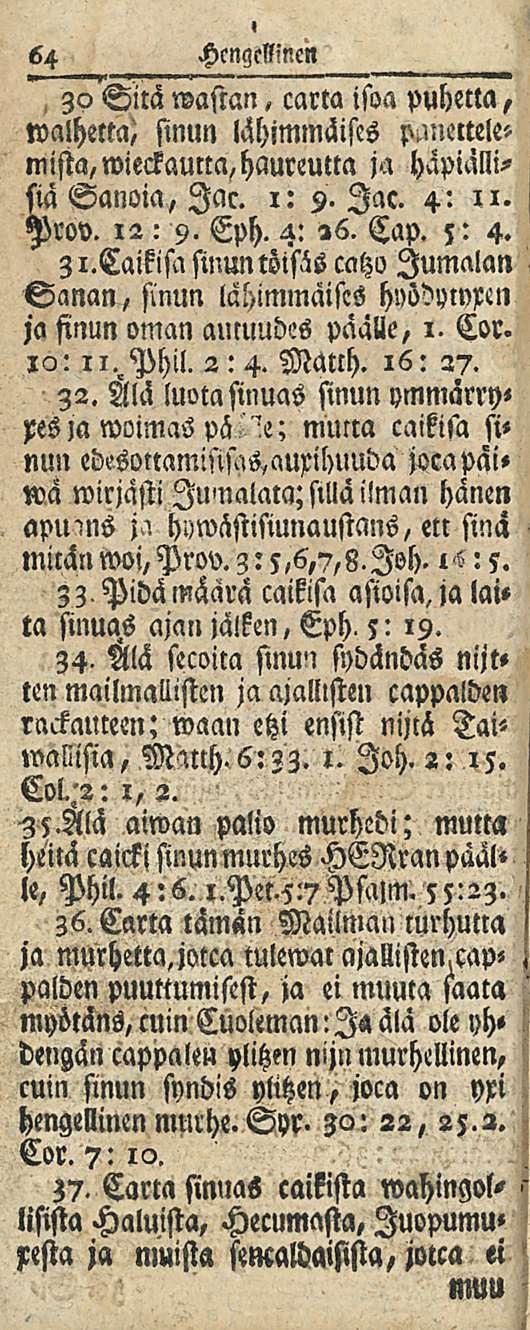 64 Hengellinen
30 Sitä wastan, carta isoa puhetta,
walhetta, sinun lähimmäises panettele-
mista, wieckautta, haureutta ja häpiälli-
siä Sanoia, Jac. 1: 9. Jac. 4: 11.
Prov. 12: 9. Eph. 4: 26. Cap. 5: 4.
31. Caikisa sinun töisäs catzo Jumalan
Sanan, sinun lähimmäises hyödytyxen
ja sinun oman autuudes päälle, 1. Cor.
10: 11. Phil. 2: 4. Matth. 16: 27.
32. Älä luota sinuas sinun ymmärry-
xes ja woimas pä le; mutta caikisa si-
nun edesottamisisas, auxihuuda joca päi-
wä wirjästi Jumalata; sillä ilman hänen
apuans ja hywästisiunaustans, ett sinä
mitän woi, Prov. 3: 5,6,7,8. Joh. 15: 5.
33. Pidä määrä caikisa asioisa, ja lai-
ta sinuas ajan jälken, Eph. 5: 19.
34. Älä secoita sinun sydändäs nijt-
ten mailmallisten ja ajallisten cappalden
rackauteen; waan etzi ensist nijtä Tai-
wallisia, Matth. 6: 33. 1. Joh. 2: 15.
Col. 2: 1, 2.
35. Älä aiwan palio murhedi; mutta
heitä caicki sinun murhes HERran pääl-
le, Phil. 4: 6. 1. Pet. 5: 7 Psalm. 55: 23.
36. Carta tämän Mailman turhutta
ja murhetta, jotca tulewat ajallisten cap-
palden puuttumisest, ja ei muuta saata
myötäns, cuin Cuoleman: Ja älä ole yh-
dengän cappalen ylitzen nijn murhellinen,
cuin sinun syndis ylitzen, joca on yxi
hengellinen murhe. Syr. 30: 22, 25. 2.
Cor. 7: 10.
37. Carta sinuas caikista wahingol-
lisista Haluista, Hecumasta, Juopumu-
xesta ja muista sencaldaisista, jotca ei
muu